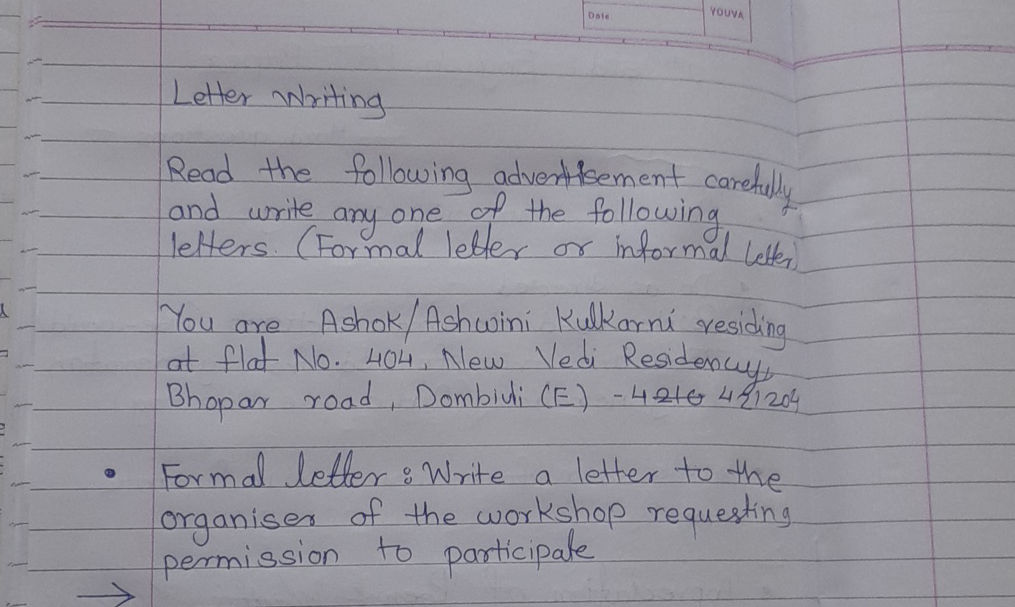 Date
YOUVA
Letter Writing
Read the following advertisement carefully
and write any one of the following
letters. (Formal letter or informal letter)
You are Ashok/Ashwini Kulkarni residing
at flat No. 404, New Vedi Residency,
Bhopar road, Dombivli (E) - 421204
• Formal letter : Write a letter to the
organiser of the workshop requesting
permission to participate
→